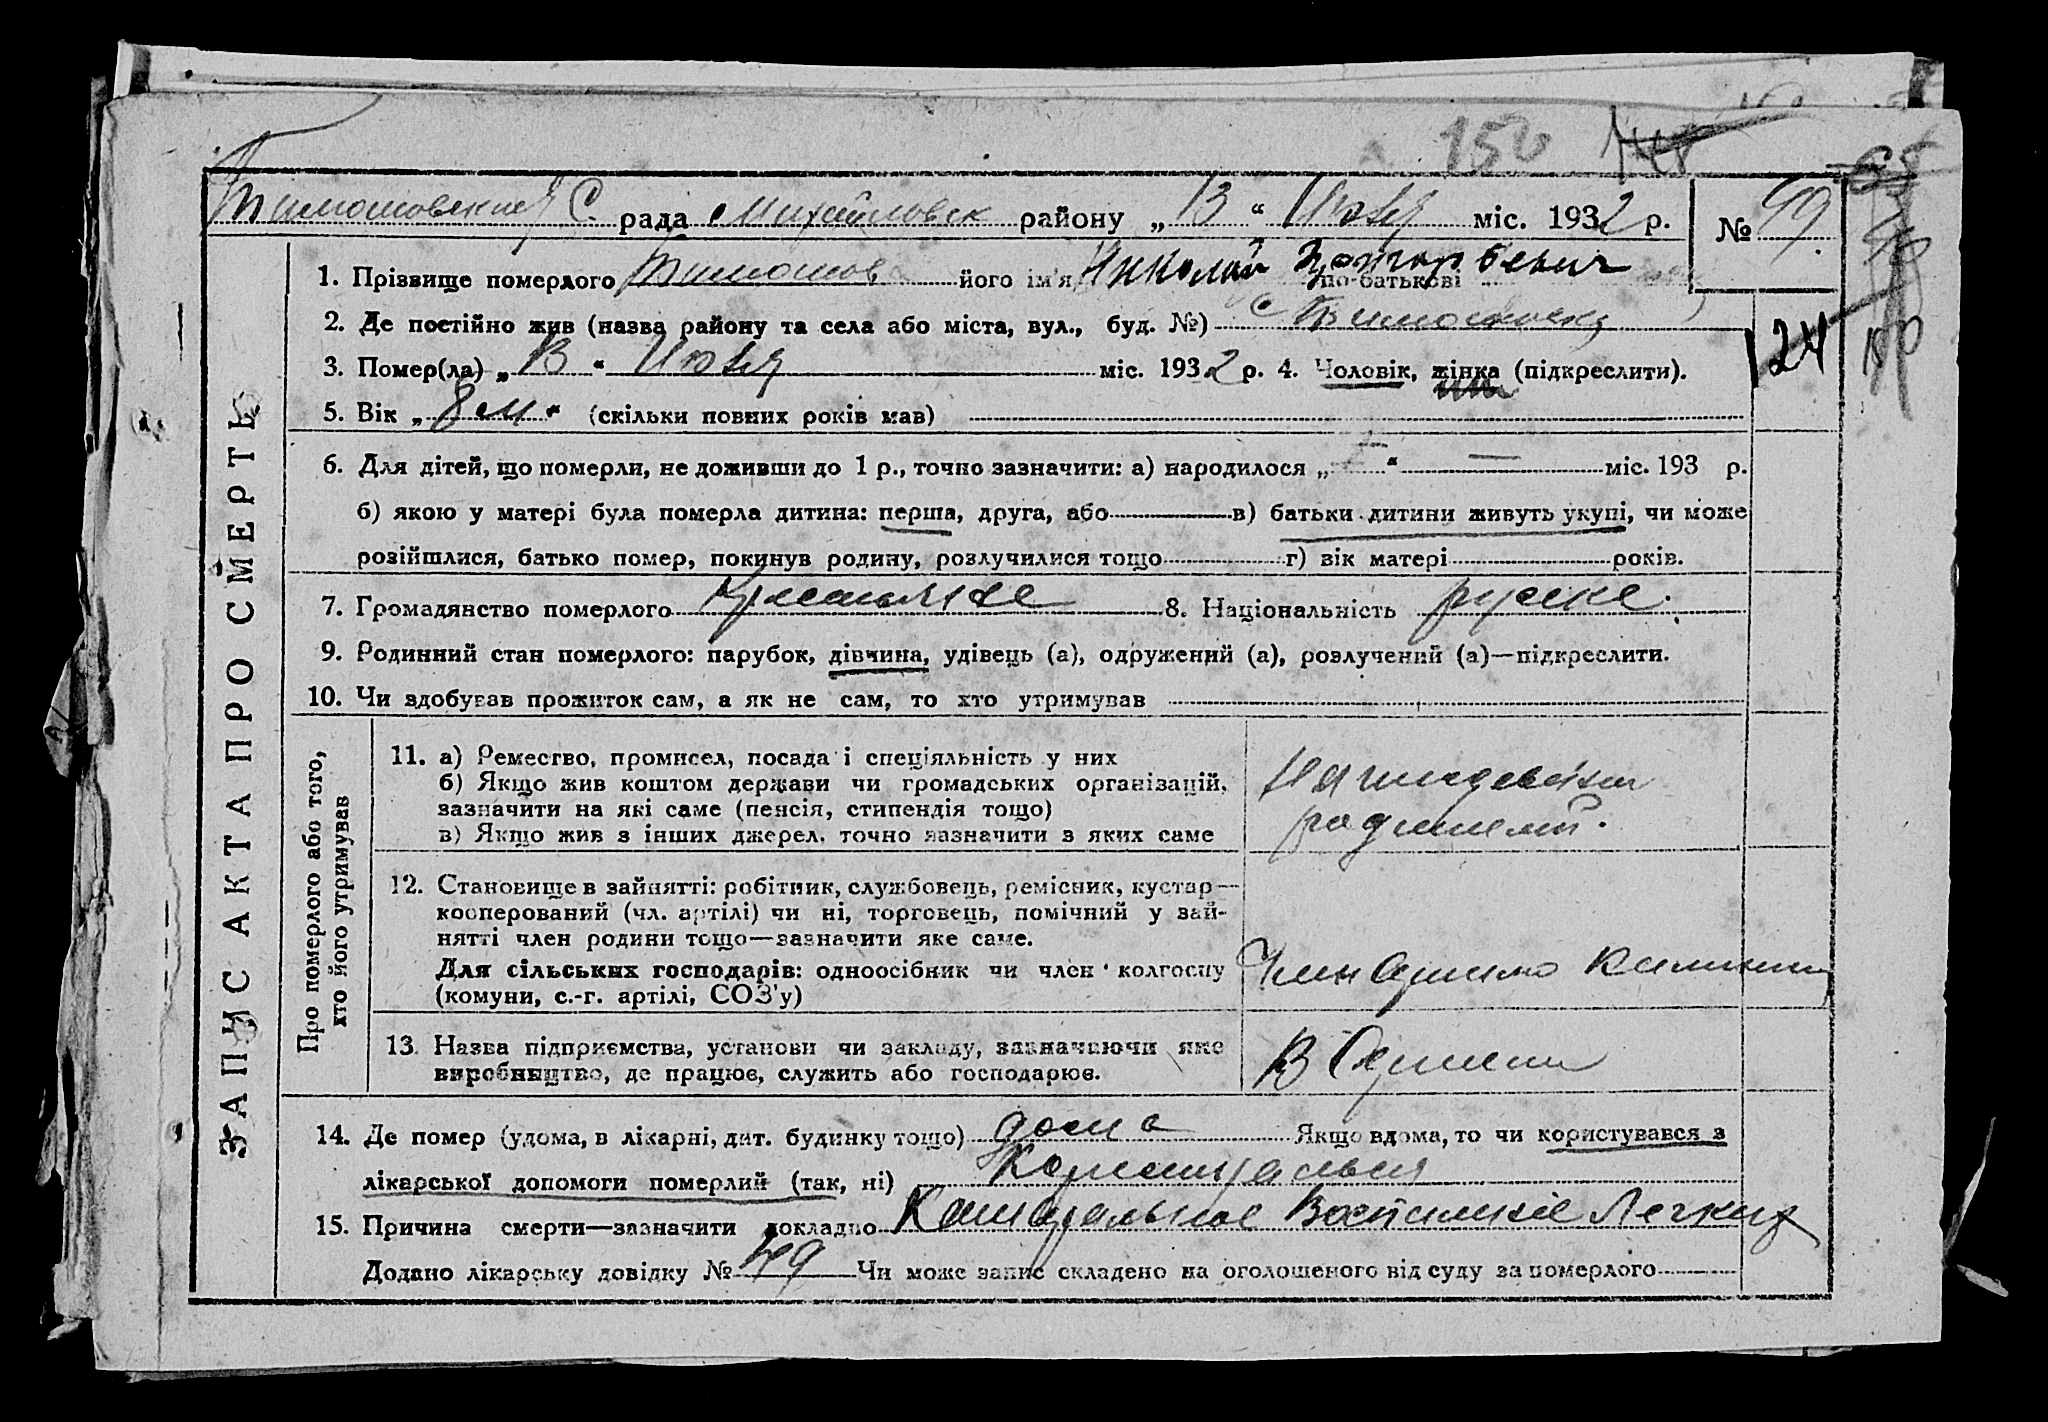 150
Тимошовский С. рада Михайловск району „ 13 “ Июля міс. 1932 р. № 49
1. Прізвище померлого Тимошов його ім'я Николай Григорьевич по-батькові
2. Де постійно жив (назва району та села або міста, вул., буд. №) с Тимошовка
3. Помер(ла) „ 13 “ Июля міс. 1932 р. 4. Чоловік, жінка (підкреслити).
24
5. Вік „ 8 м “ (скільки повних років мав)
6. Для дітей, що померли, не доживши до 1 р., точно зазначити: а) народилося „ “ — міс. 193 р.
б) якою у матері була померла дитина: перша, друга, або в) батьки дитини живуть укупі, чи може
розійшлися, батько помер, покинув родину, розлучилися тощо г) вік матері років.
7. Громадянство померлого 8. Національність руске.
9. Родинний стан померлого: парубок, дівчина, удівець (а), одружений (а), розлучений (а)—підкреслити.
10. Чи здобував прожиток сам, а як не сам, то хто утримував
ЗАПИС АКТА ПРО СМЕРТЬ
Про померлого або того, хто його утримував
11. а) Ремество, промисел, посада і спеціяльність у них
б) Якщо жив коштом держави чи громадських організацій,
зазначити на які саме (пенсія, стипендія тощо)
в) Якщо жив з інших джерел, точно зазначити з яких саме
На иждевении
родителей.
12. Становище в зайнятті: робітник, службовець, ремісник, кустар—
кооперований (чл. артілі) чи ні, торговець, помічний у зай-
нятті член родини тощо—зазначити яке саме.
Для сільських господарів: одноосібник чи член колгоспу
(комуни, с.-г. артілі, СОЗ'у)
Член Артили Калинина
13. Назва підприємства, установи чи закладу, зазначаючи яке
виробництво, де працює, служить або господарює.
В Артели
14. Де помер (удома, в лікарні, дит. будинку тощо) дома Якщо вдома, то чи користувався з
лікарської допомоги померлий (так, ні)
15. Причина смерти—зазначити докладно Воспаление Легких
Додано лікарську довідку № 49 Чи може запис складено на оголошеного від суду за померлого